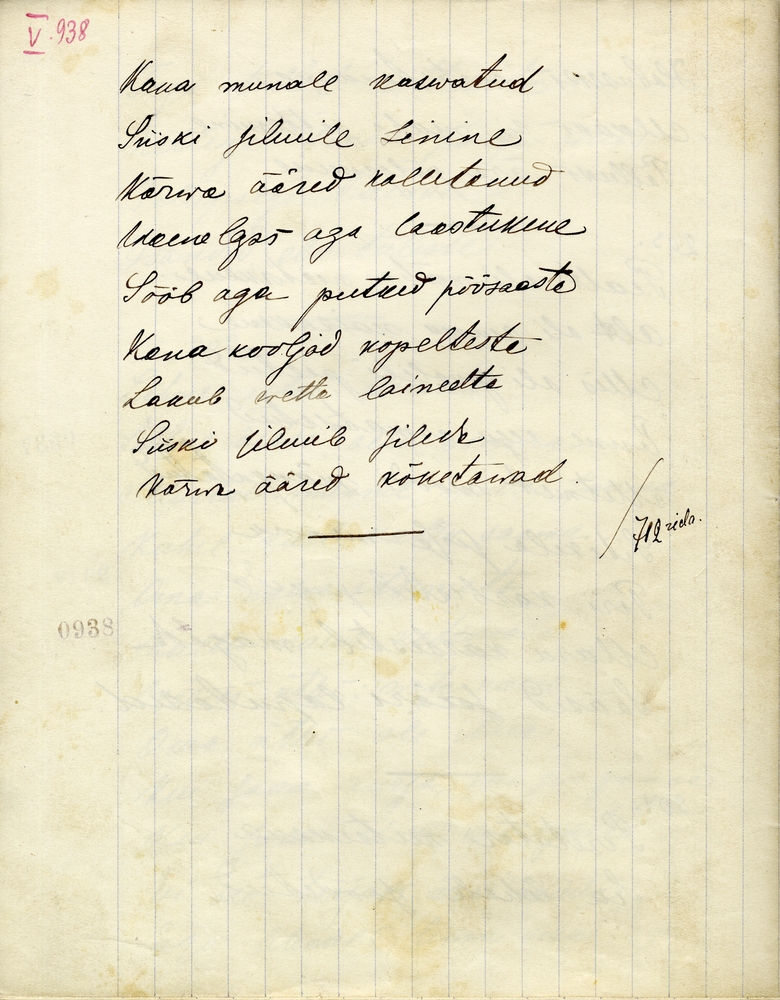 V. 938
Kana munale kaswatud
Siiski silmile sinine
Kõrwa ääred kolletanud
aga laastukene
Sööb aga putked põõsaaste
Kana kooljad kopelteste
Lakub wetta laineetta
Siiski silmib
Kõrwa ääred kõketawad.
712 rida.
0938